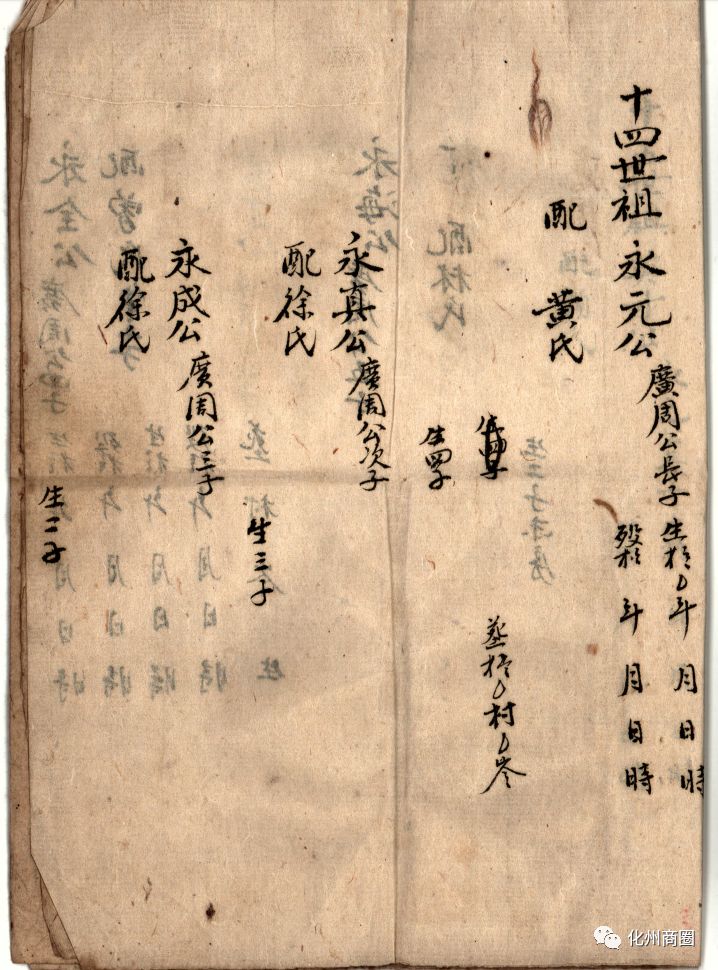 十四世祖 永元公 廣周公長子 生於 年 月 日 時
殁於 年 月 日 時
配 黃氏
葬於 村 岑
生四子
永真公 廣周公次子
配徐氏
生三子
永成公 廣周公三子
配徐氏
生二子
化州商圈